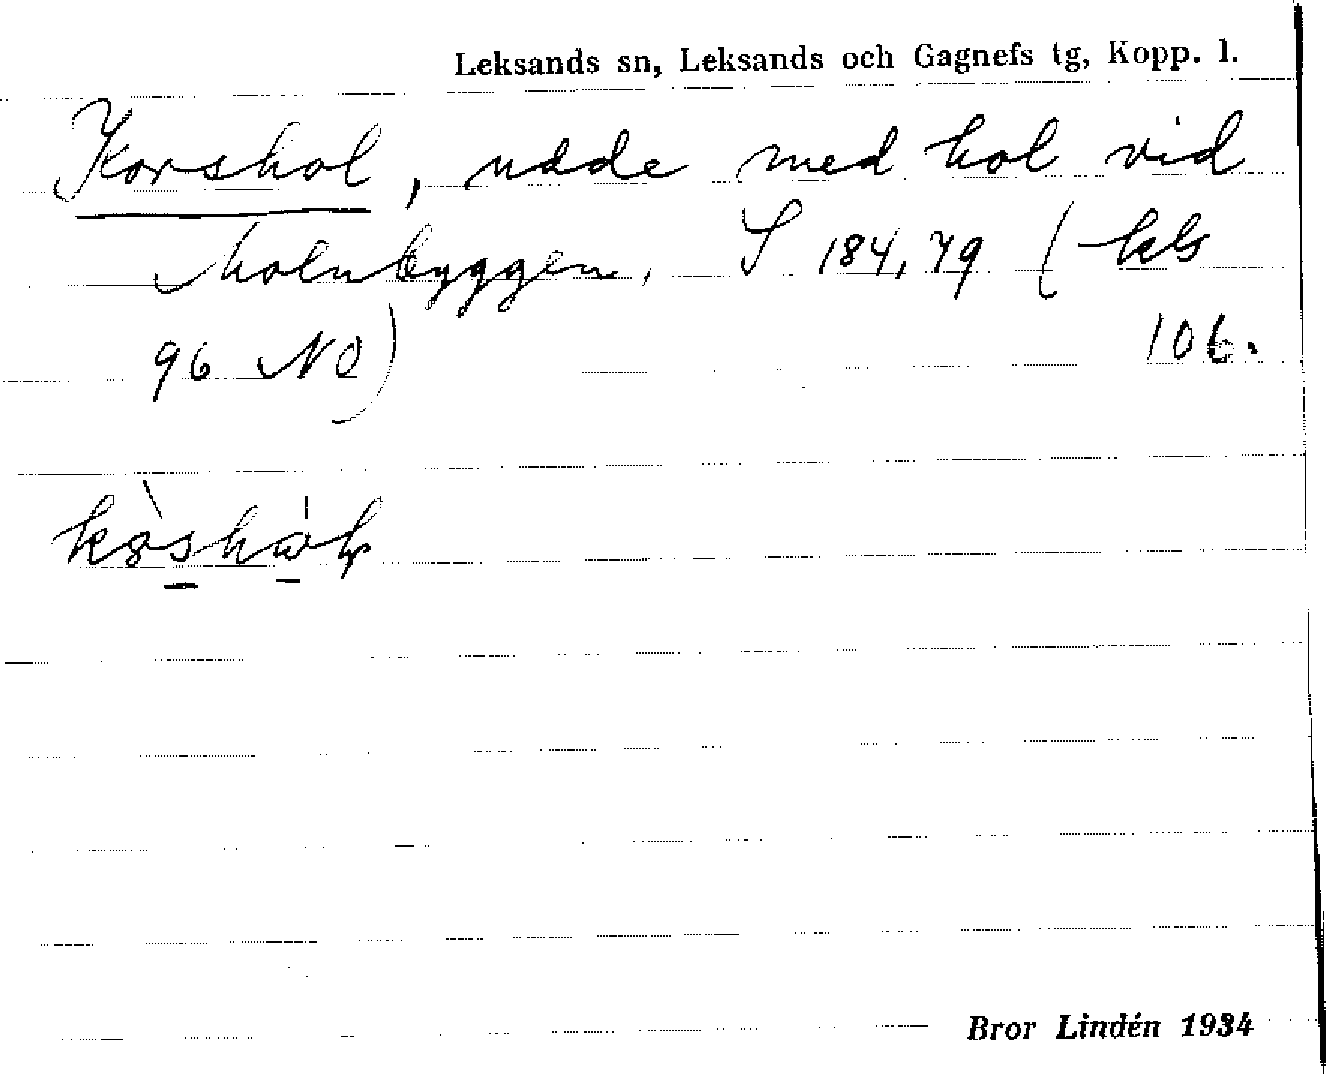 Leksands sn, Leksands och Gagnefs tg, Kopp. l.
Korshol, udde med hol vid
Molnbyggen, S 184,79 (kls
96 NO) 106.
Bror Lindén 1934